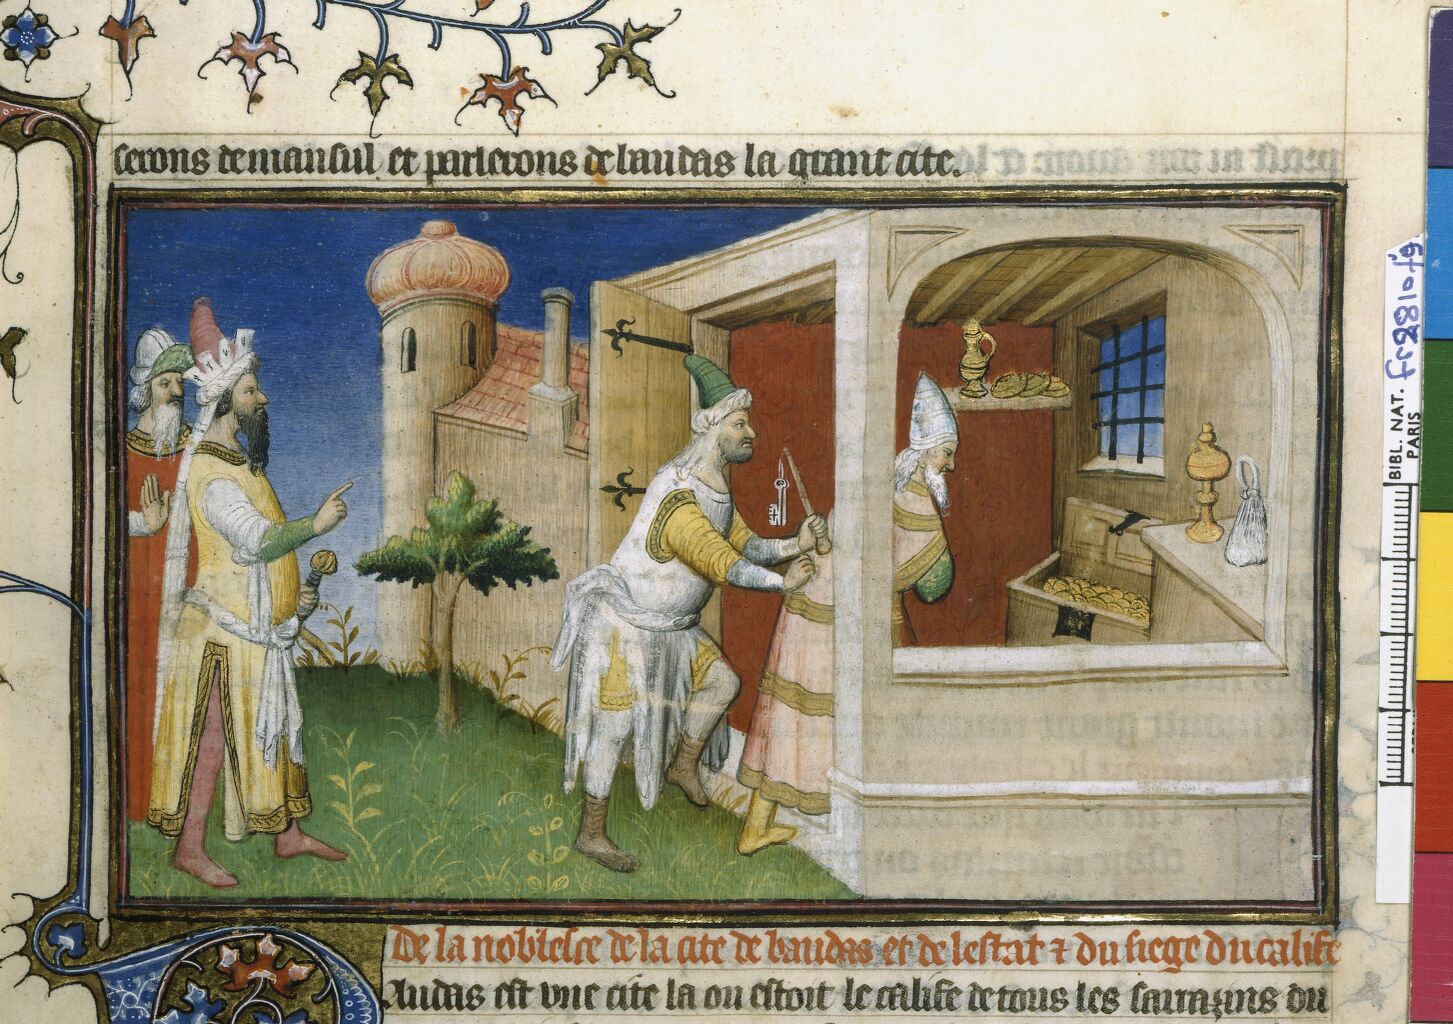 serons de mausul et parlerons de baudas la grant cite.
De la noblesce de la cite de baudas et de lestat ⁊ du siege du calife
Audas est vne cite la ou estoit le calife de tous les sarrazins du
BIBL. NAT. fr2810 f9
PARIS